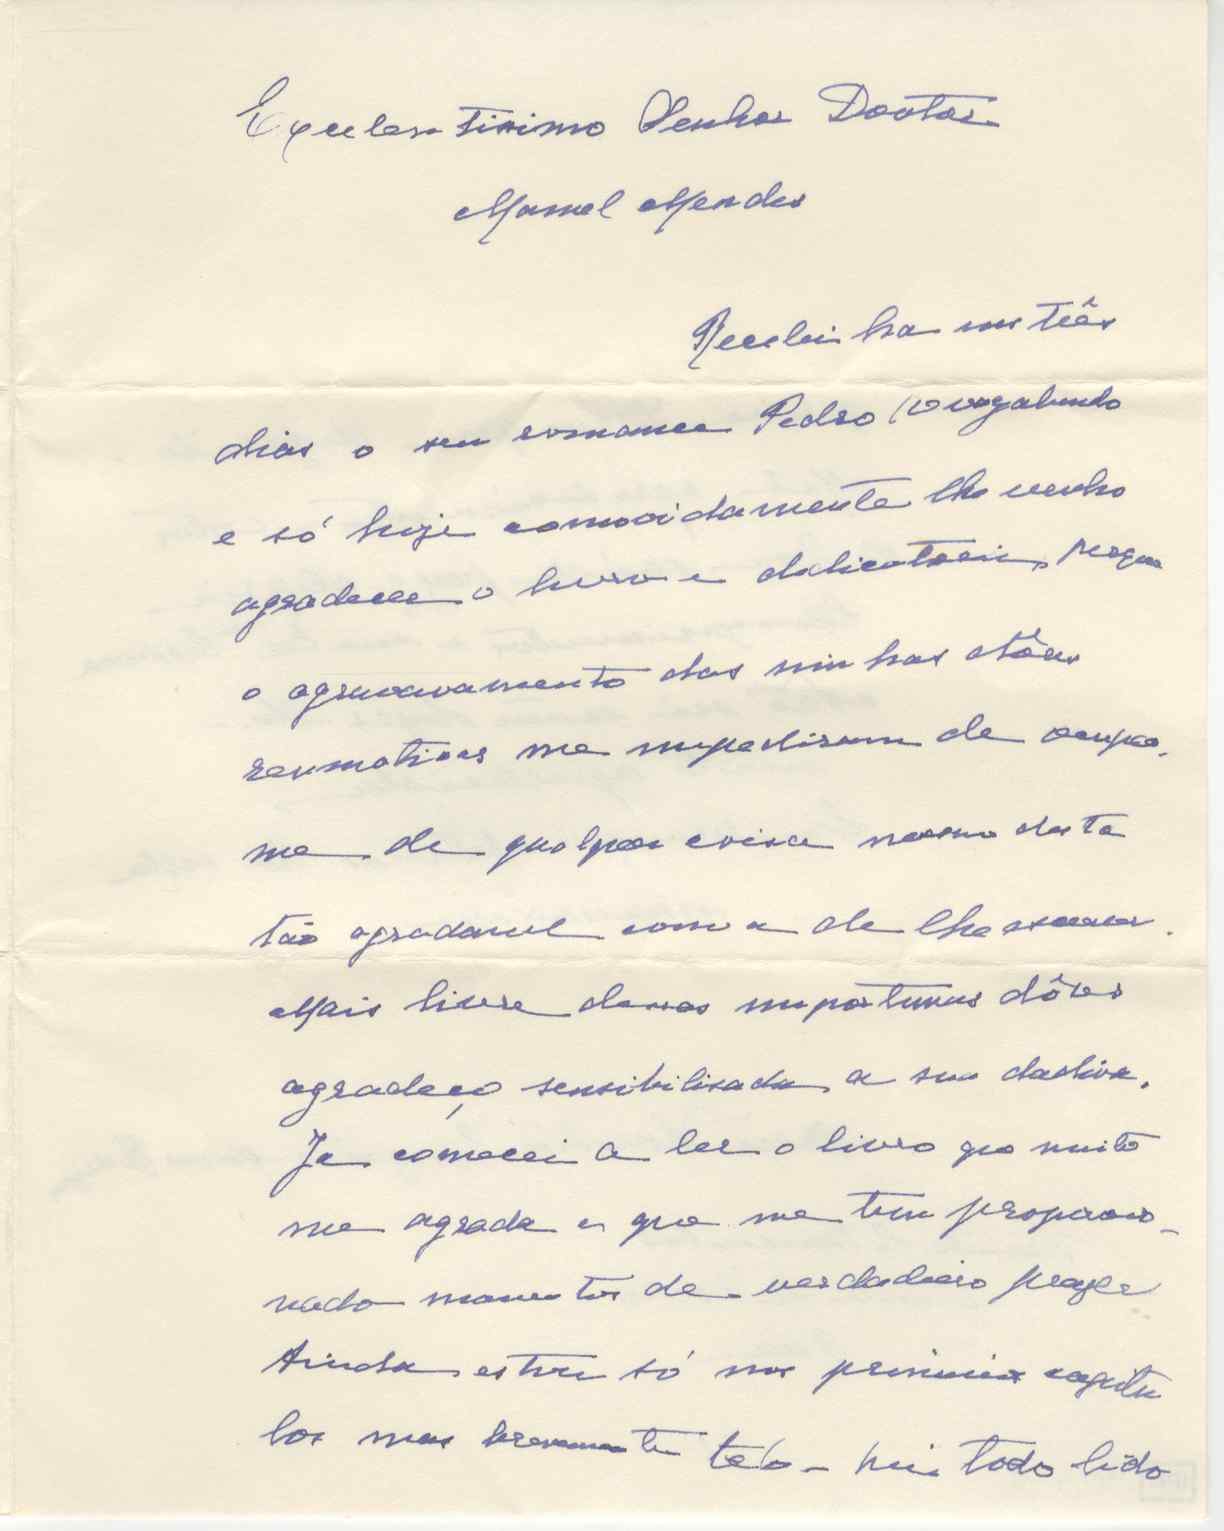 Excelentissimo Senhor Doutor
Manuel Mendes
Recebi ha uns três
dias o seu romance Pedro (O vagabundo
e só hoje comovidamente lhe venho
agradecer o livro e dedicatoria, porque
o agravamento das minhas dôres
reumaticas me impediram de ocupar-
me de qualquer coisa mesmo desta
tão agradavel como a de lhe escrever.
Mais livre dessas importunas dôres
agradeço sensibilisada a sua dadiva.
Ja comecei a ler o livro que muito
me agrada e que me tem proporcio-
nado momentos de verdadeiro prazer
Ainda estou só nos primeiros capitu
los mas brevemente te-lo-hei todo lido